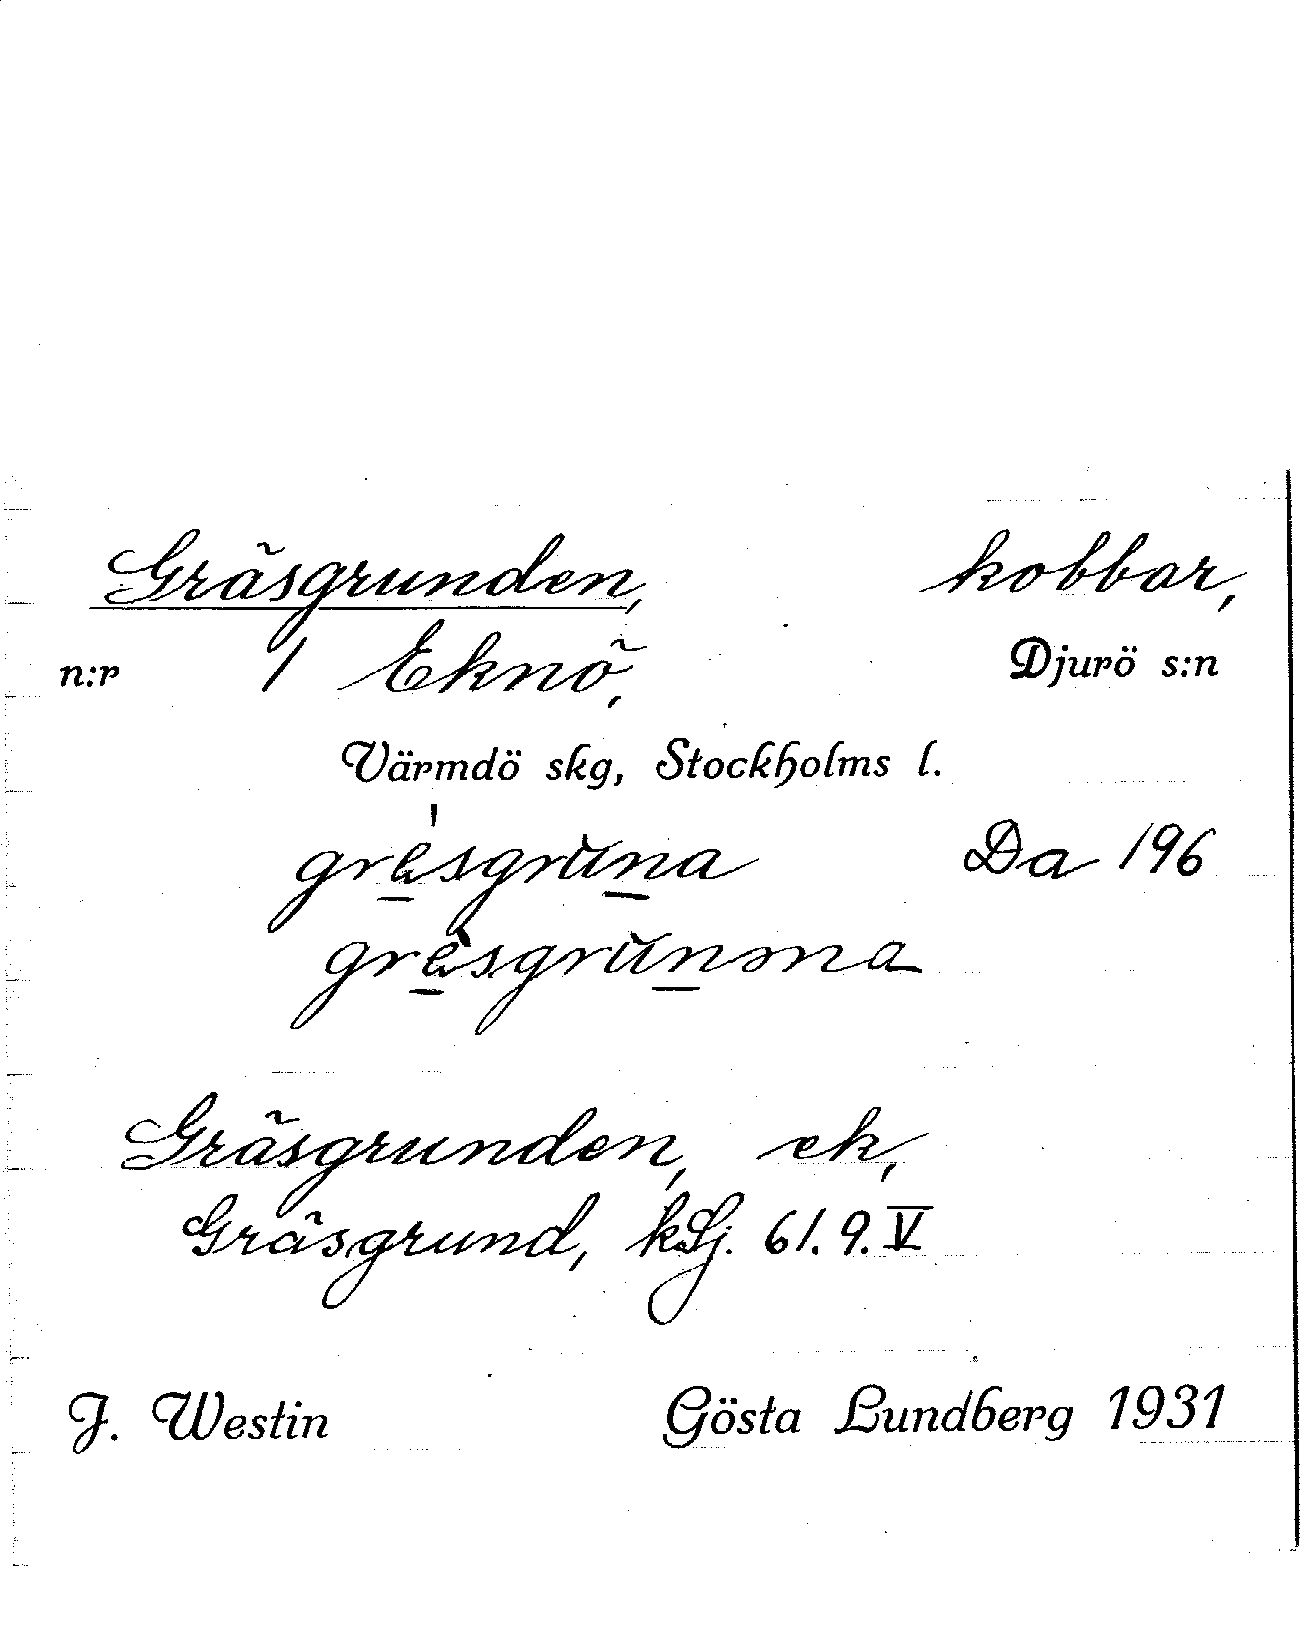 Gräsgrunden, kobbar,
n:r 1 Eknö, Djurö s:n
Värmdö skg, Stockholms l.
grèsgruna Da 196
grèsgrunna
Gräsgrunden, ek,
Gräsgrund, kSj. 61.9.V
J. Westin Gösta Lundberg 1931